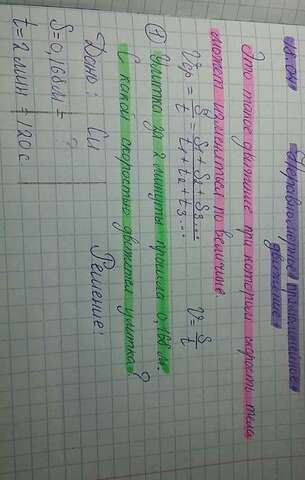 Неравномерное прямолинейное
движение
Это такое движение при котором скорость тела
может изменяться по величине.
Vср = S/t = S1 + S2 + S3.../t1 + t2 + t3...   V = S/t
① Улитка за 2 минуты прошла 0,168 м.
С какой скоростью движется улитка?
Дано: Си Решение:
S=0,168м =
t=2мин = 120 с